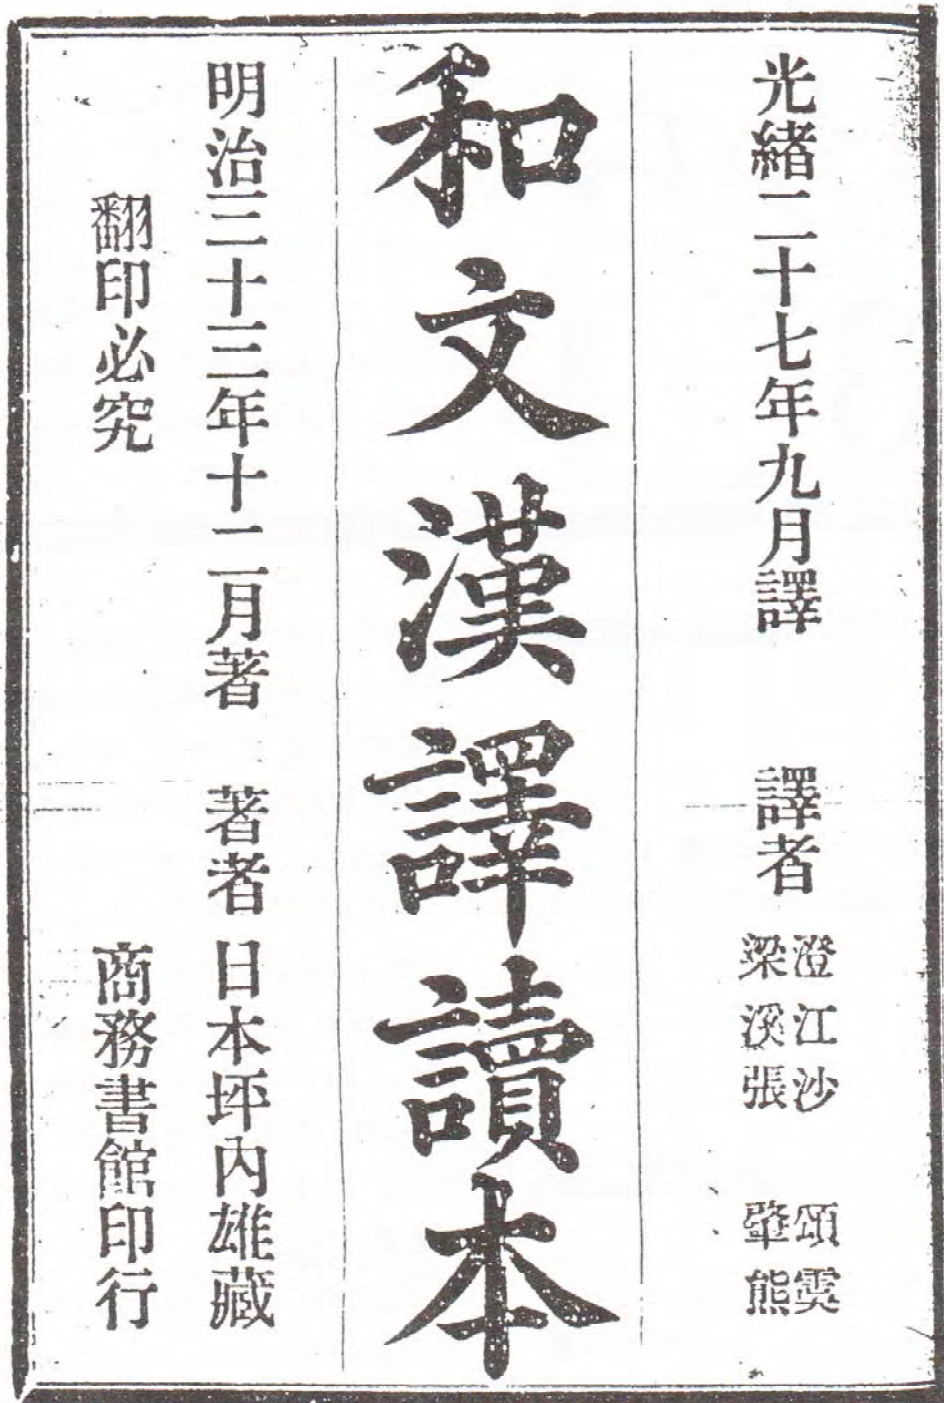 光緒二十七年九月譯 譯者 澄江沙 頌雯
梁溪張 肇熊
和文漢譯讀本
明治三十三年十一月著 著者 日本坪內雄藏
翻印必究 商務書館印行